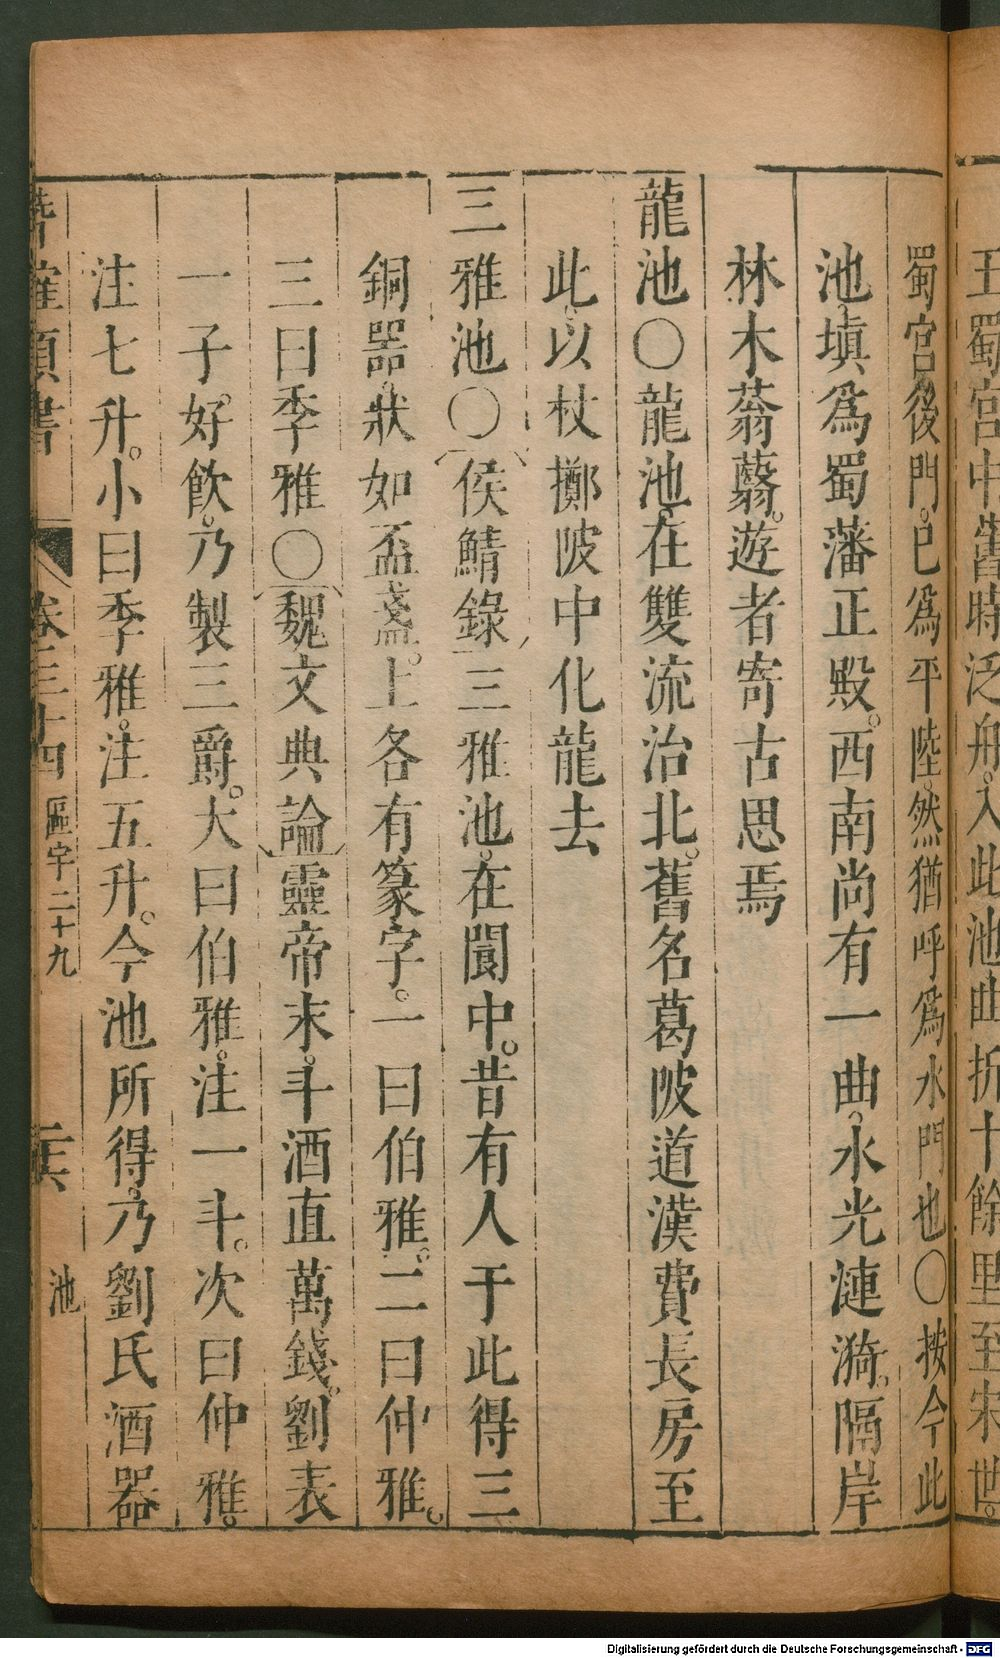 王蜀宮中舊時泛舟。入此池曲折十餘里至宋世。
蜀宮後門。已爲平陸。然猶呼爲水門也〇按今此
池。填爲蜀藩正殿。西南尚有一曲。水光漣漪。隔岸
林木蓊蘙。遊者寄古思焉
龍池〇龍池。在雙流治北。舊名葛陂道漢費長房至
此。以杖擲陂中化龍去
三雅池〇侯鯖錄三雅池。在閬中。昔有人于此得三
銅器。狀如盃盞。上各有篆字。一曰伯雅。二曰仲雅。
三曰季雅〇魏文典論靈帝末。斗酒直萬錢。劉表
一子好飲。乃製三爵。大曰伯雅。注一斗。次曰仲雅。
注七升。小曰季雅。注五升。今池所得。乃劉氏酒器
潛確類書 卷三十四 區宇二十九 池
Digitalisierung gefördert durch die Deutsche Forschungsgemeinschaft - DFG